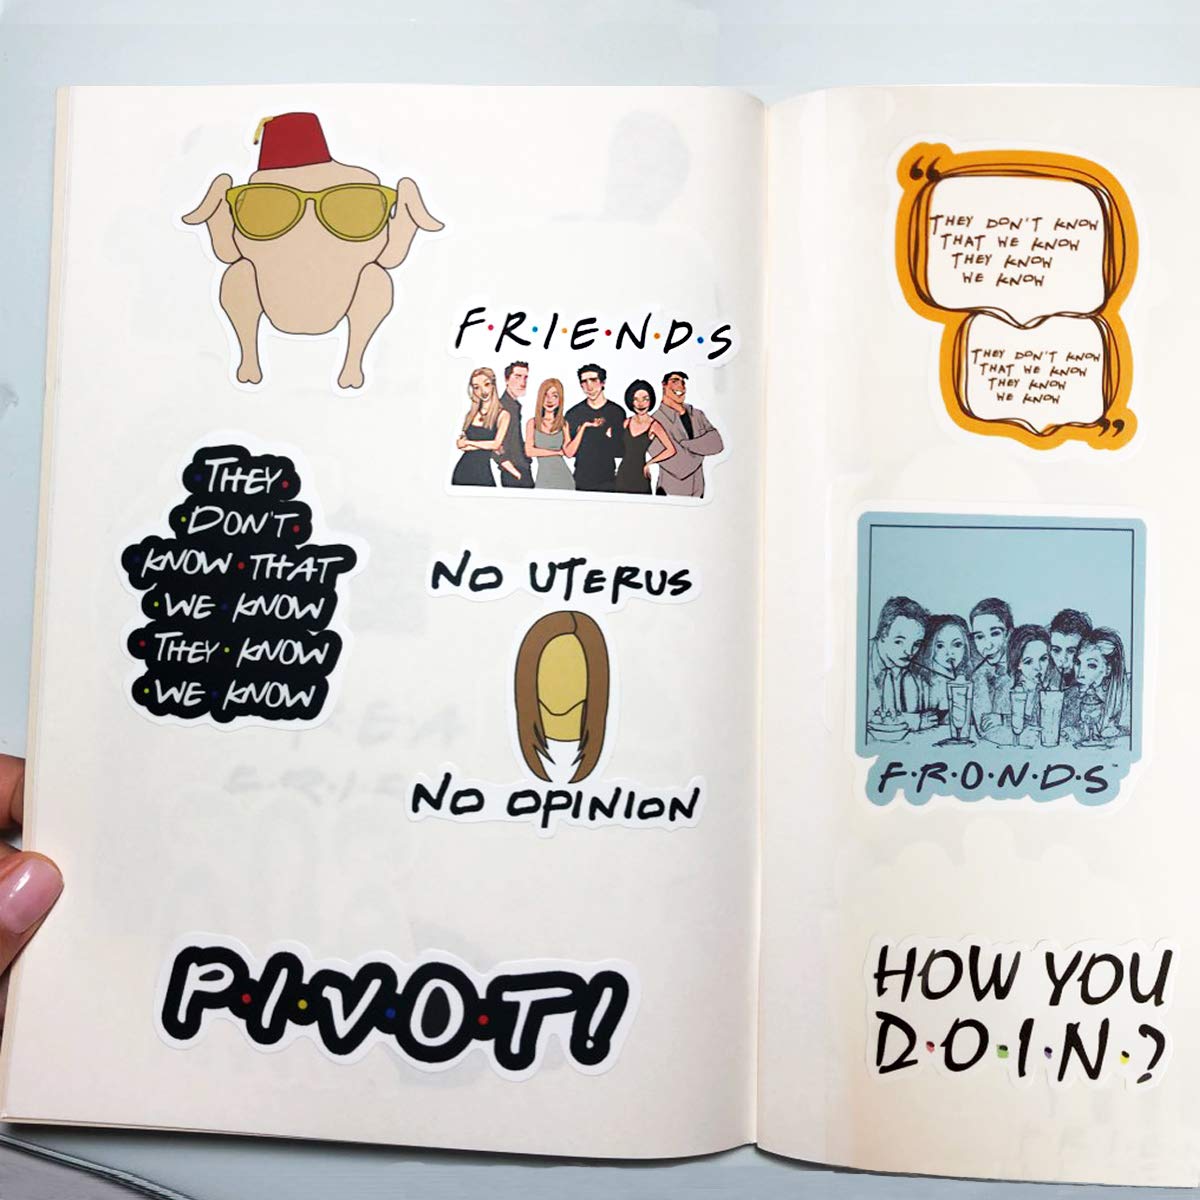 F·R·I·E·N·D·S
THEY
DON'T
KNOW THAT
WE KNOW
THEY KNOW
WE KNOW
NO UTERUS
NO OPINION
P·I·V·O·T!
“
THEY DON'T KNOW
THAT WE KNOW
THEY KNOW
WE KNOW
THEY DON'T KNOW
THAT WE KNOW
THEY KNOW
WE KNOW
”
F·R·O·N·D·S
HOW YOU
D·O·I·N·?